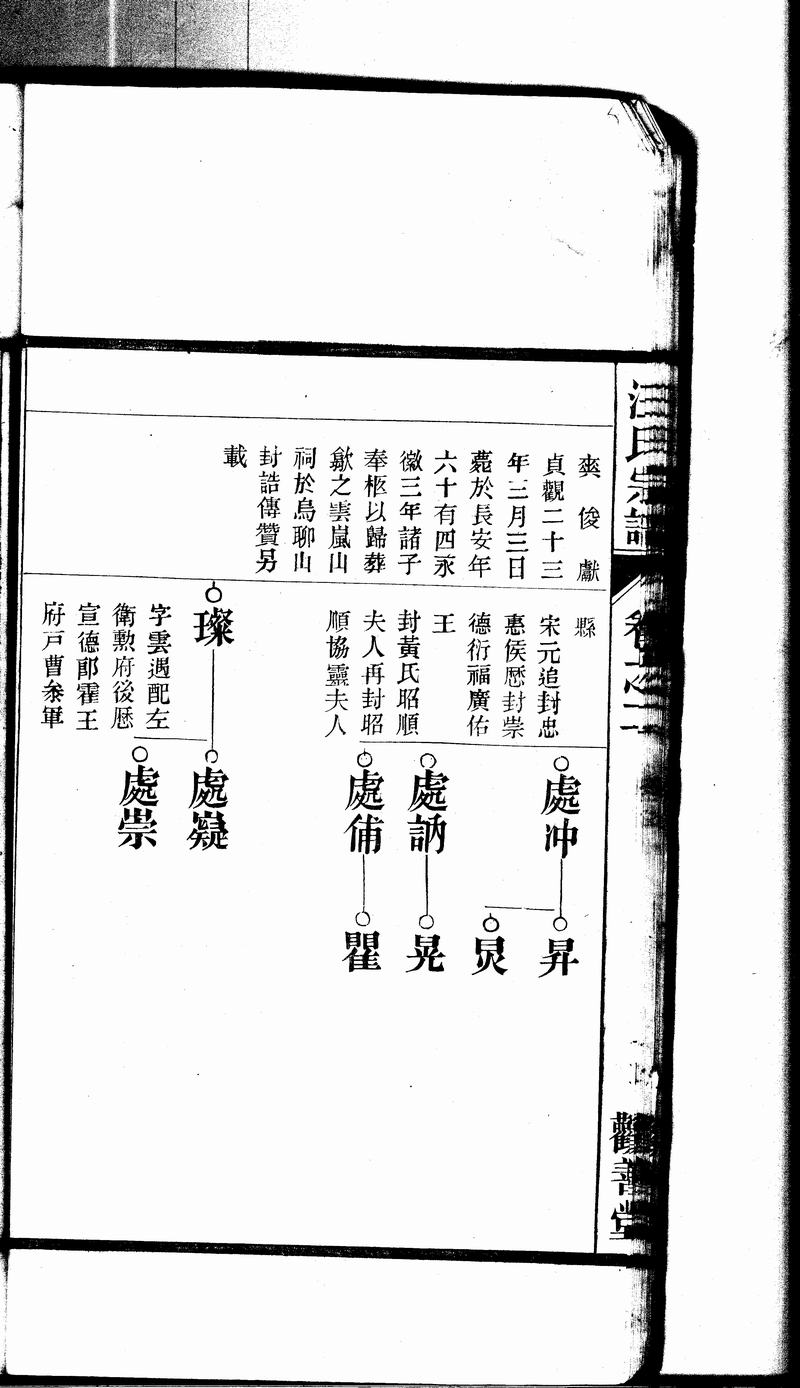 汪氏宗譜
卷
觀善堂
爽俊獻
貞觀二十三
年三月三日
薨於長安年
六十有四永
徽三年諸子
奉柩以歸葬
歙之雲嵐山
祠於烏聊山
封誥傳贊另
載
縣
宋元追封忠
惠侯歷封崇
德衍福廣佑
王
封黃氏昭順
夫人再封昭
順協靈夫人
璨
字雲遇配左
衛勲府後歷
宣德郎霍王
府戸曹叅軍
處冲
處訥
處俌
處嶷
處崇
昇
炅
晃
瞿